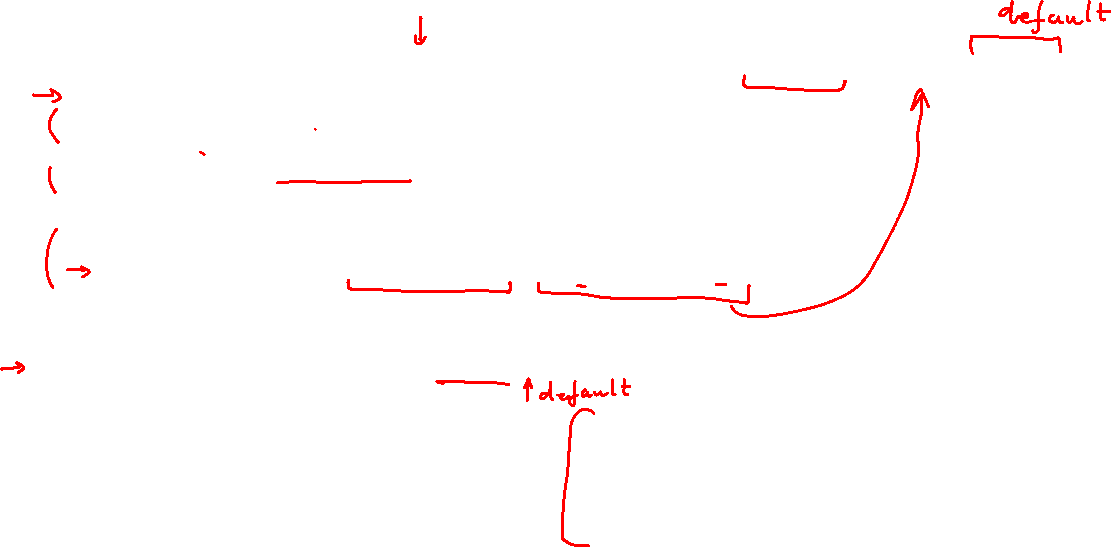 default
default